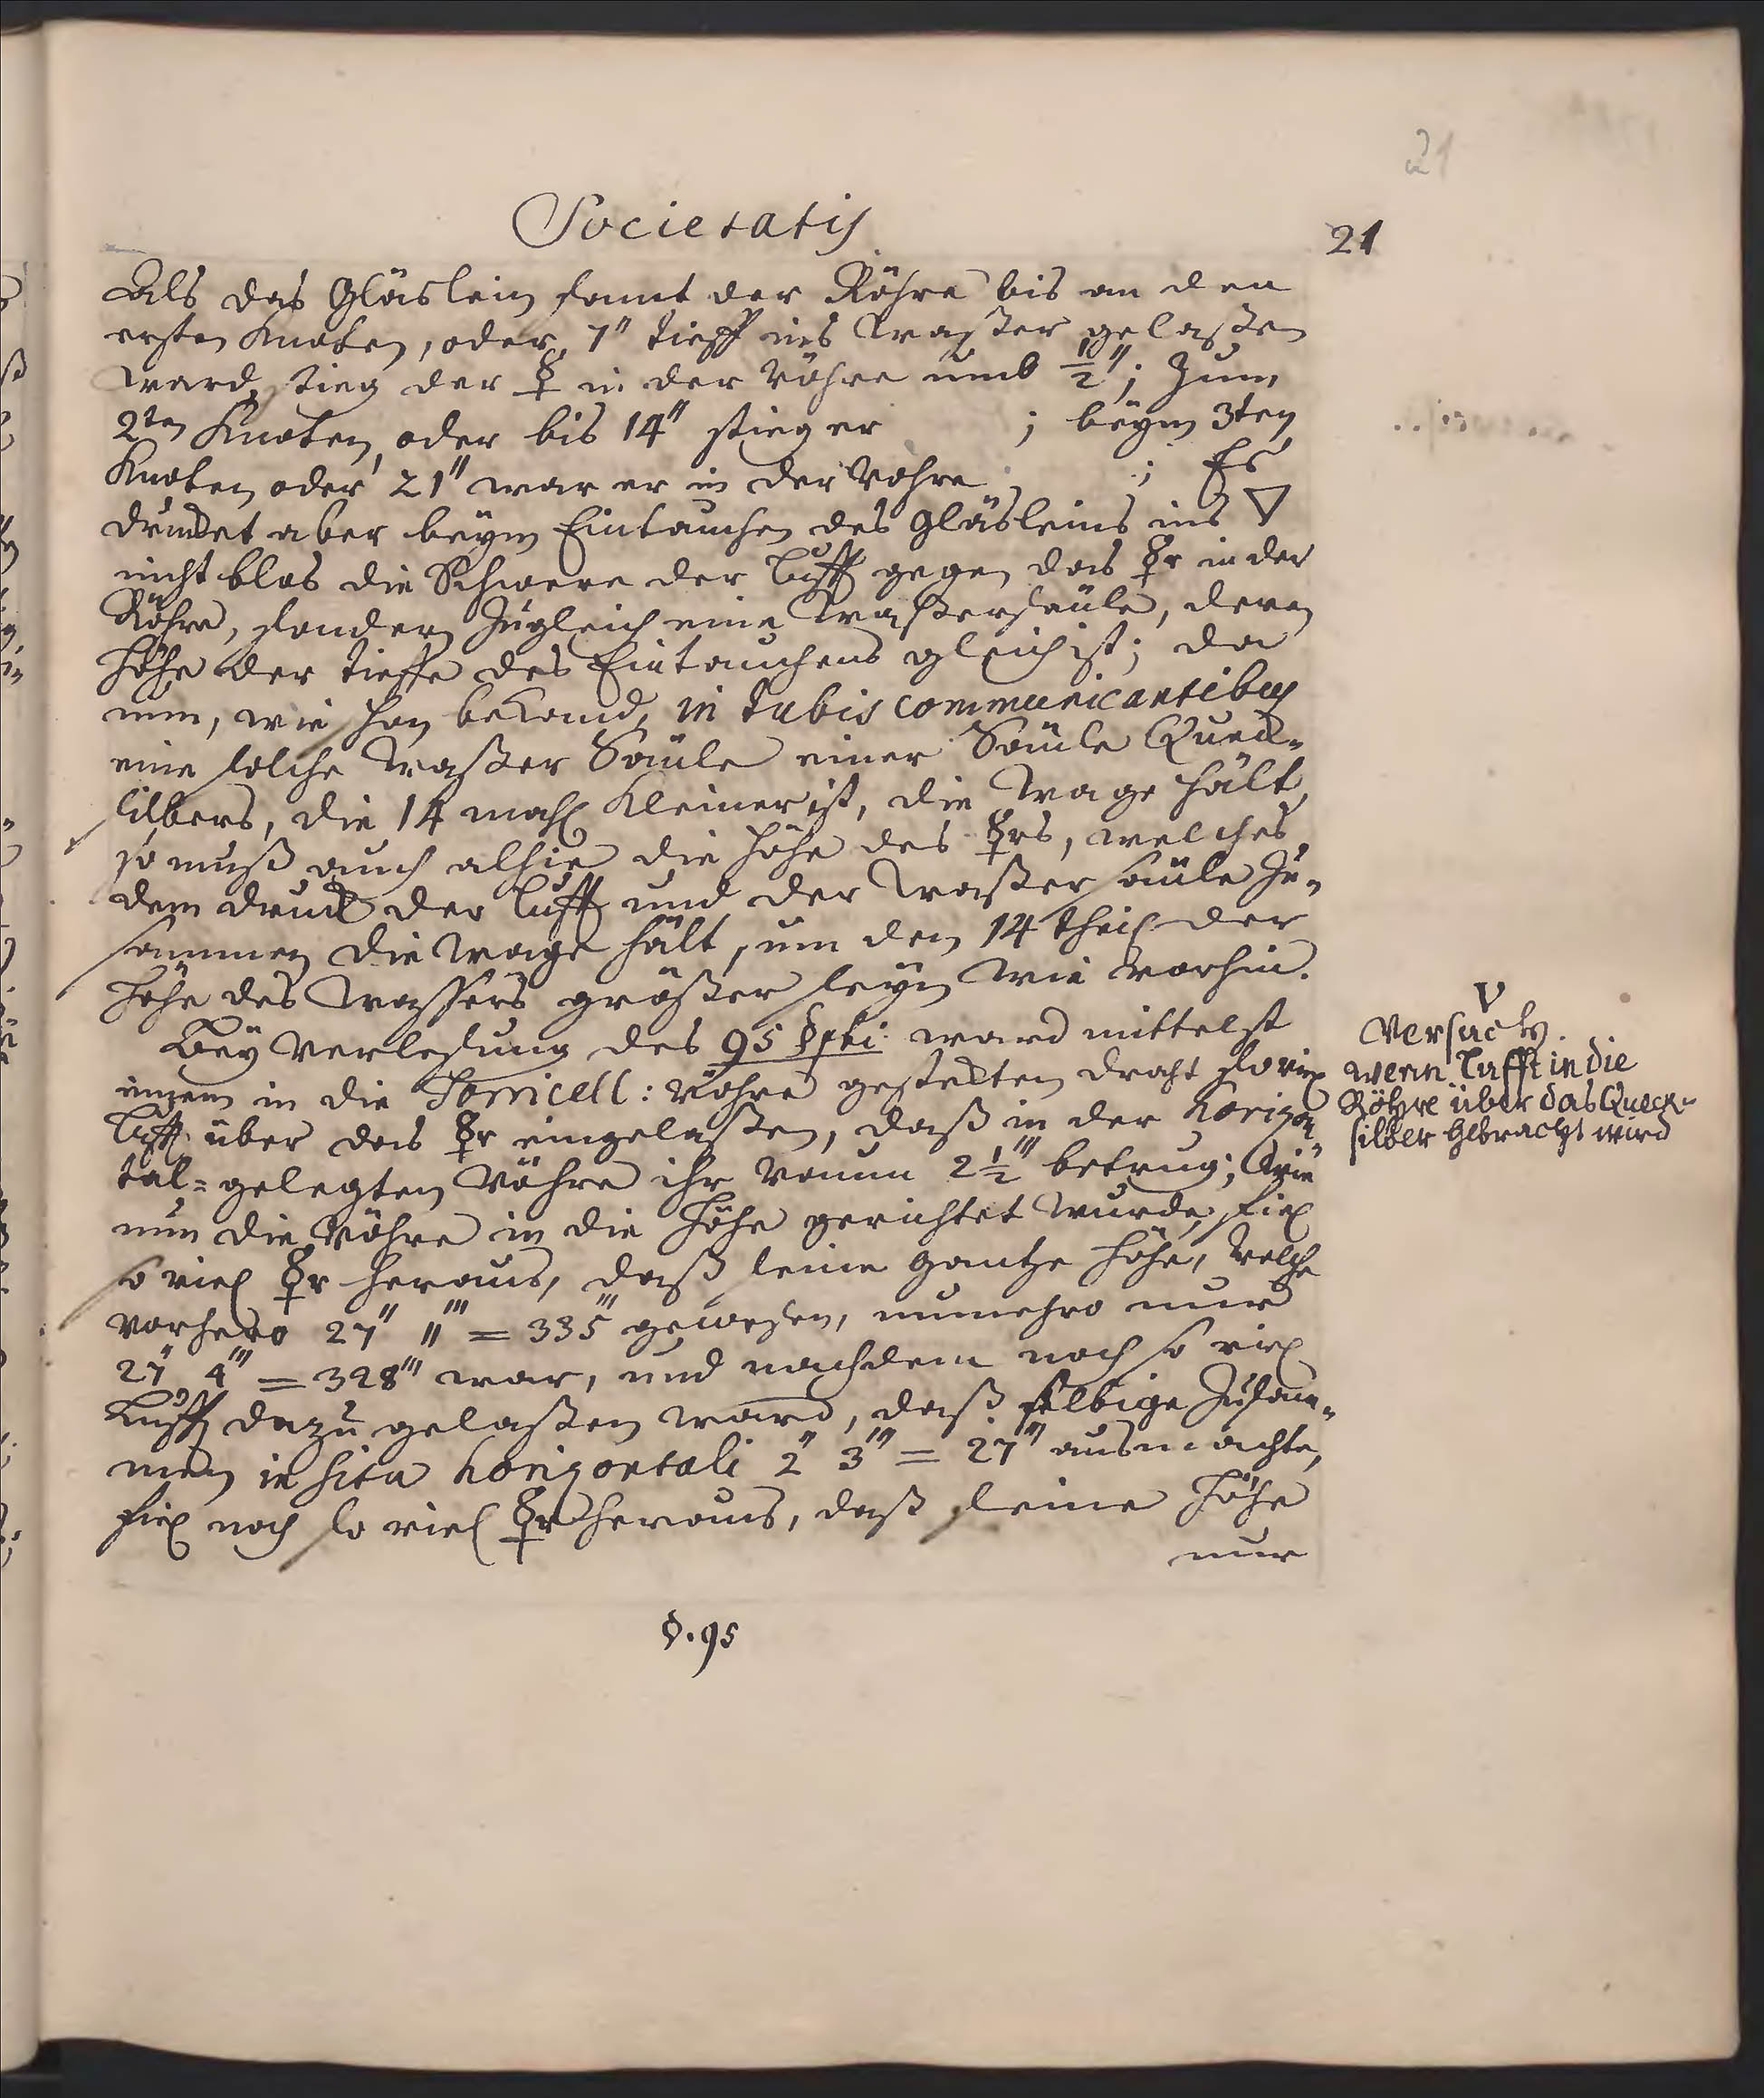 21
Societatis
21
Als das Gläslein samt der Röhre bis an den
ersten Knoten, oder 7" tieff ins Waßer gelaßen
ward, stieg der ☿ in der Röhre umb ½"; Zum
2ten Knoten, oder bis 14" stieg er ; beÿm 3ten
Knoten oder 21" war er in der Röhre ; Es
drucket aber beÿm Eintauchen des Gläsleins ins ▽
nicht blos die Schwere der Lufft gegen das ☿r in der
Röhre, sondern zugleich eine Waßersäule, deren
Höhe der tieffe des Eintauchens gleich ist; da
nun, wie schon bekand, in tubis communicantibus
eine solche Waßer Säule einer Säule Queck-
silbers, die 14 mahl kleiner ist, die Wage hält,
so muß auch alhie die Höhe des ☿rs, welches
dem druck der Lufft und der Waßersäule zu-
sammen die Wage hält, um den 14 theil der
Höhe des Wassers größer seyn wie vorhin.
Beÿ Verlesung des 95 §phi ward mittelst
einem in die Torricell: Röhre gesteckten Draht so viel
Lufft über das ☿r eingelaßen, daß in der horizon
tal-gelegten Röhre ihr Raum 2½''' betrug; Wie
nun die Röhre in die Höhe gerichtet wurde, fiel
so viel ☿r heraus, daß seine gantze Höhe, welche
vorhero 27" 11''' = 335''' gewesen, nunmehro nur
27" 4''' = 328''' war, und nachdem noch so viel
Lufft dazu gelaßen ward, daß selbige zusam-
men in situ horizontali 2" 3''' = 27''' ausmachte,
fiel noch so viel ☿r heraus, daß seine Höhe
nur
V
Versuch
wenn Lufft in die
Röhre über das Queck-
silber gebracht wird
§. 95